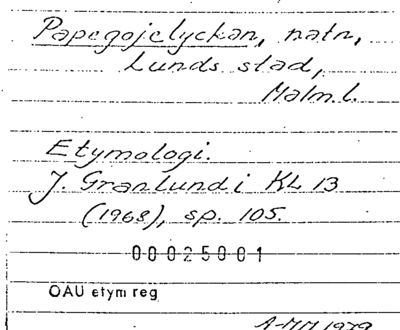 Papegojelyckan, natn,
Lunds stad,
Malm.l.
Etymologi.
J. Granlund i KL 13
(1968), sp. 105.
00025001
OAU etym reg
A-MM 1979